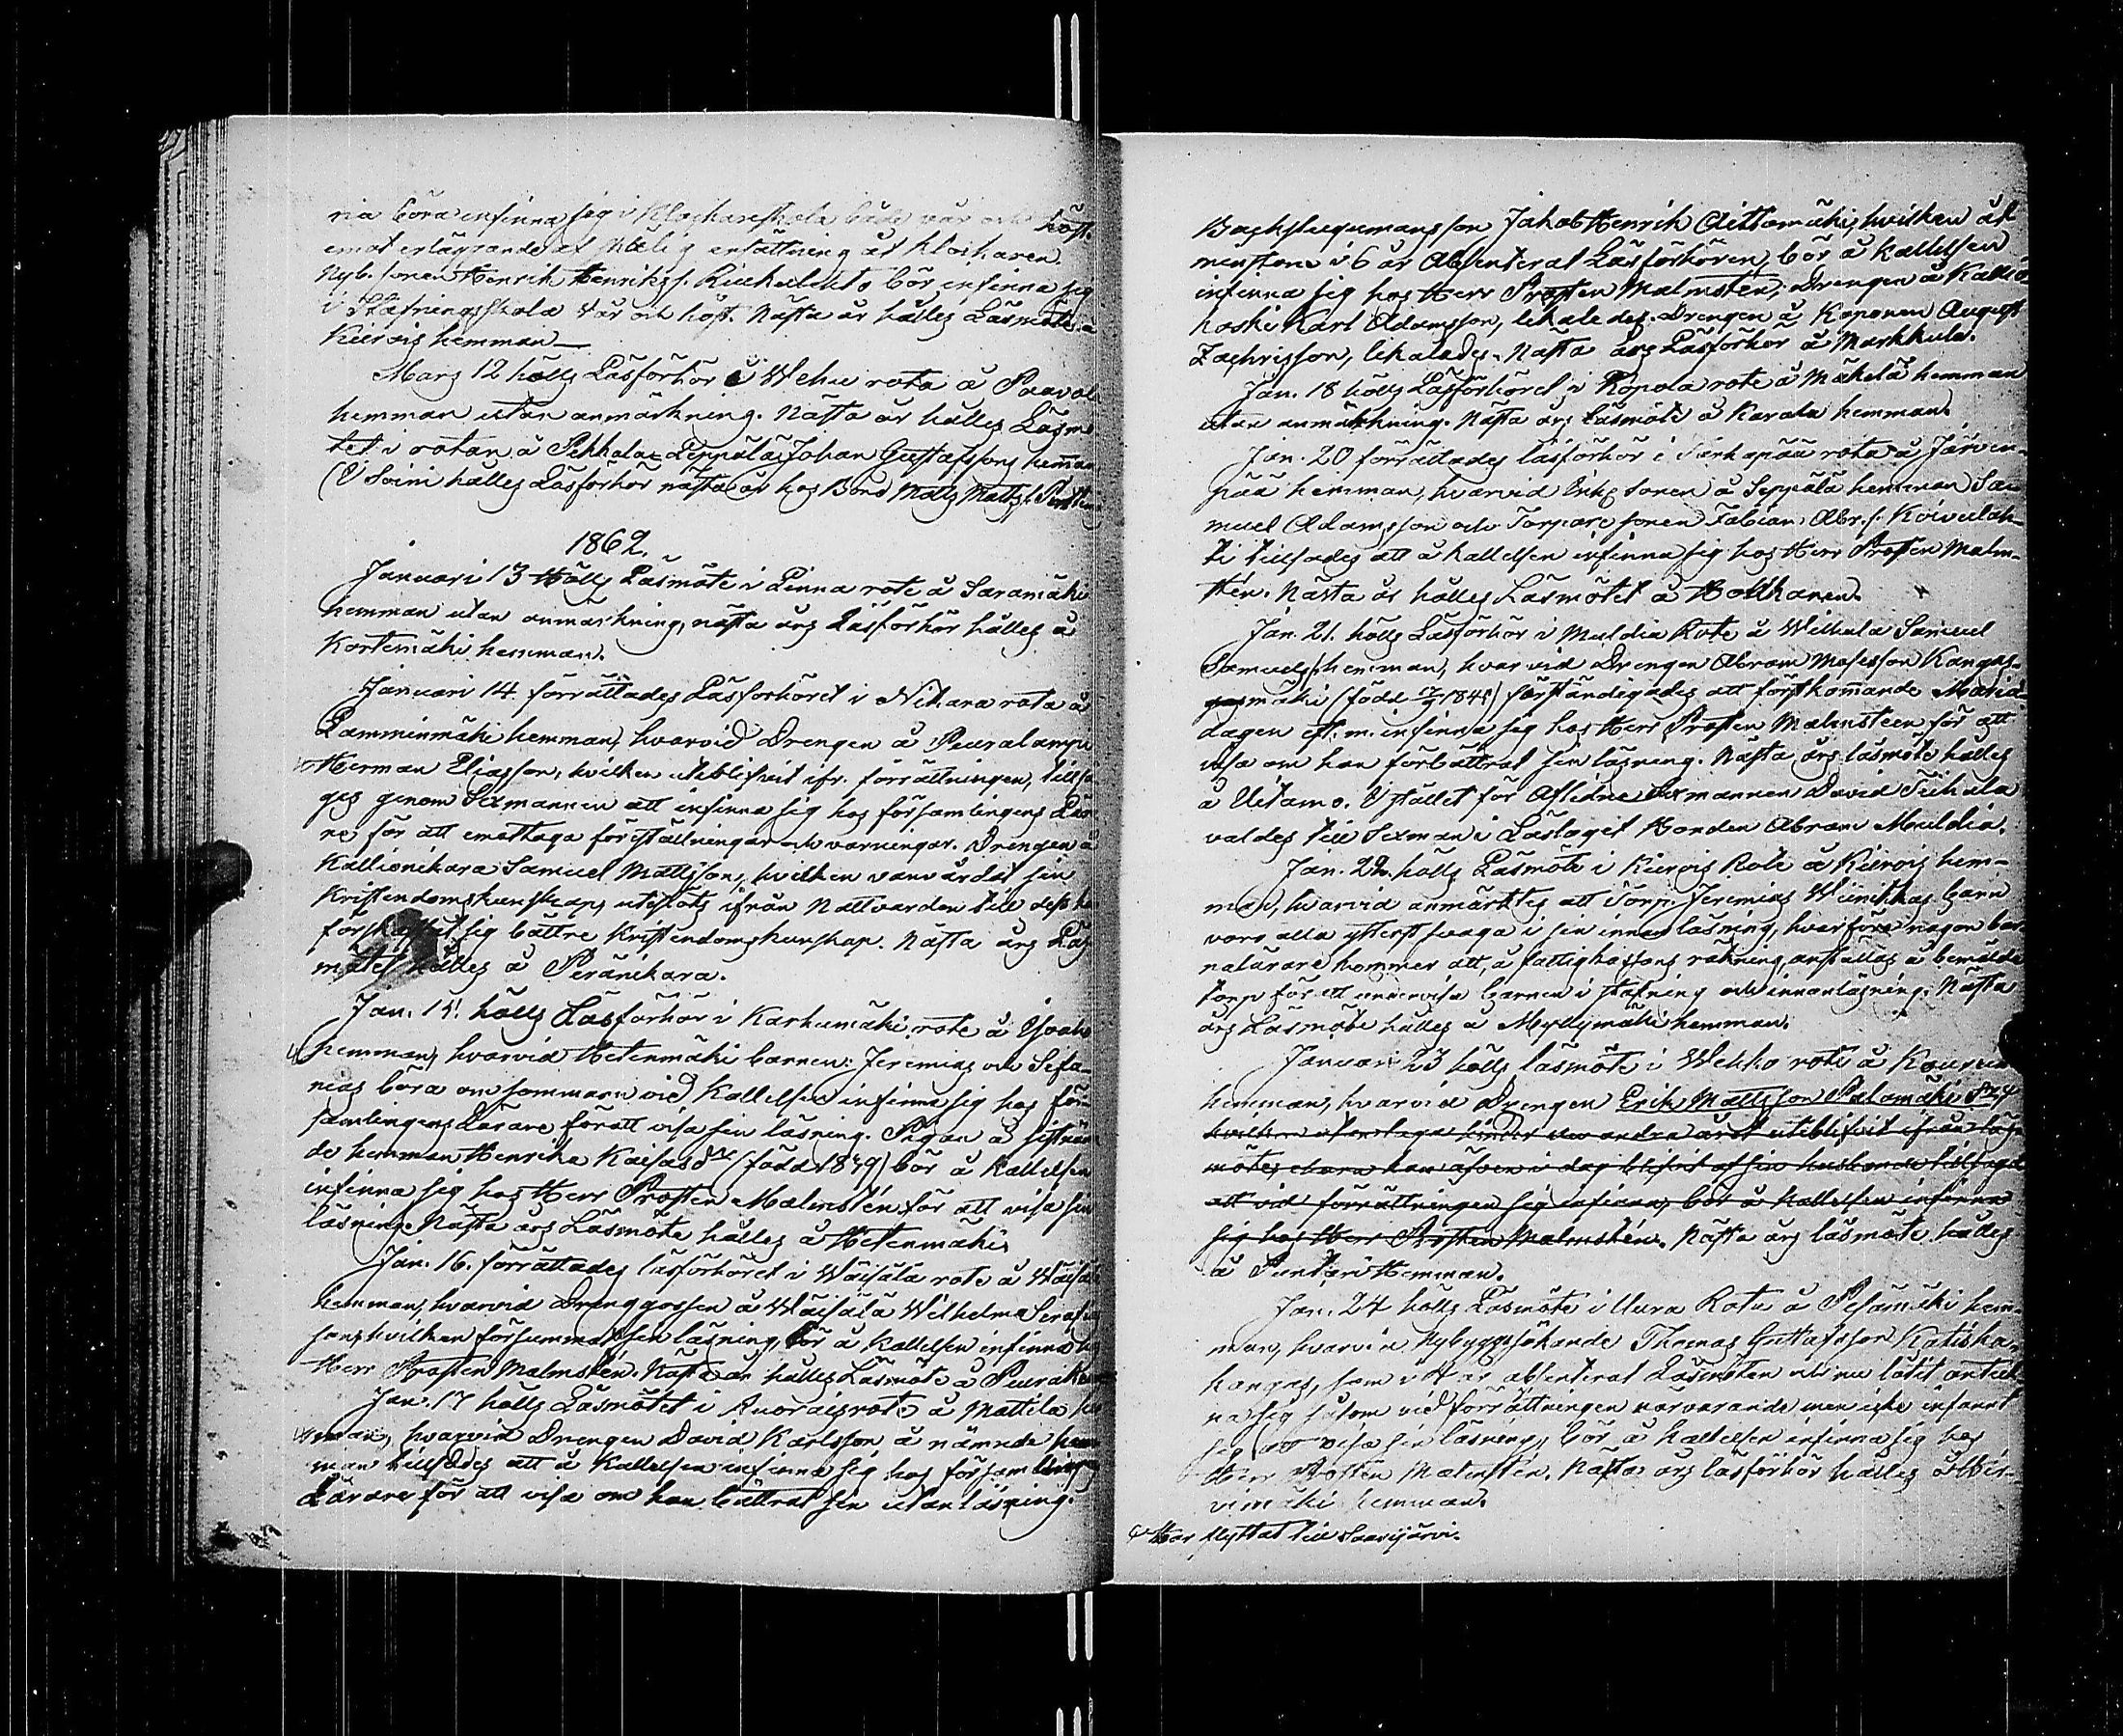 ria böra infinna sig i Klockareskola både vår och höst
emot erläggande af  ersättning åt Klockaren.
Nyb. sonen Henrik Henrikss.  bör infinna sig
i Stafningsskola vår och höst. Nästa år hålles Läsmöte å
Kiivois hemman —
Mars 12 hölls Läsförhör i Wehu rota å Paavol
hemman utan anmärkning. Nästa år hålles Läsmö
tet i rotan å Pekkala-Leppälä Johan Gustafssons hemman
(I Soini hålles Läsförhör nästa år hos Bond Matts Matts.s. Perttu
1862.
Januari 13 Hölls Läsmöte i Linna rote å Saramäki
hemman utan anmärkning, nästa års Läsförhör hålles å
Kortemäki hemman.
Januari 14 förrättades Läsförhöret i Nikara rota å
Lamminmäki hemman, hvarvid Drengen å Peuralampi
Herman Eliasson, hvilken uteblifvit ifr. förrättningen, tillsä
ges genom Sexmannen att infinna sig hos församlingens Lära
re för att emottaga föreställningar och varningar. Drengen å
Kallionikara Samuel Mattsson, hvilken vanvårdat sin
Kristendomskunskap, utslöts ifrån Nattvarden till dess han
förskaffat sig bättre Kristendomskunskap. Nästa års Läs
mötet hålles å Peränikara.
Jan. 15. hölls Läsförhör i Karhumäki rote å Ysoaho
hemman, hvarvid Hetenmäki barnen: Jeremias och Sefa-
nias böra om sommarn vid Kallelsen infinna sig hos för-
samlingens Lärare för att visa sin läsning. Pigan å sistnäm
de hemman Henrika Kaisasdr (född 1849) bör å kallelsen
infinna sig hos Herr Prosten Malmstén för att visa sin
läsning. Nästa års Läsmöte hålles å Hetenmäki.
Jan. 16. förrättades läsförhöret i Wäisälä rote å Wäisälä
hemman, hvarvid Drenggossen å Wäisälä Wilhelm Serafia
son, hvilken försummat sin läsning, bör å Kallelsen infinna sig
Herr Prosten Malmstén. Nästa år hålles Läsmöte å
Jan. 17 hölls Läsmötet i  rote å Mattila hem
man, hvarvid Drengen David Karlsson å nämnde hem
man tillsades att å Kallelsen infinna sig hos församlings
Lärare för att visa om han bättrat sin utanläsning.
Backstugumansson Jakob Henrik Aittomäki, hvilken åt
minstone i 6 år absenterat Läsförhören, bör å kallelsen
infinna sig hos Herr Prosten Malmstén; Drengen å Kallio-
koski Karl Adamsson, likaledes. Drengen å Koponen August
Zachrisson, likaledes. Nästa års Läsförhör å Markkula.
Jan. 18 hölls Läsförhöret i Ropola rote å Mäkelä hemman
utan anmärkning. Nästa års Läsmöte å Karala hemman.
Jan. 20 förrättades läsförhör i  rota å Järvin-
pää hemman, hvarvid Inhs sonen å Seppälä hemman Sa-
muel Adamsson och Torpare sonen Fabian Abr.s. Koivulah-
ti tillsades att å kallelsen infinna sig hos Herr Prosten Malm-
stén. Nästa år hålles Läsmötet å
Jan. 21. hölls Läsförhör i Muldia Rote å Wilkala Samuel
Samuels.s. hemman, hvarvid Drengen Abram Mosesson Kangas-
mäki (född 1845) förständigades att förstkommande Maria-
dagen eft.m. infinna sig hos Herr Prosten Malmsteen för att
visa om han förbättrat sin läsning. Nästa års läsmöte hålles
å Uitamo. I stället för Aflidne Sexmannen David Tiihala
valdes till Sexman i Läslaget Bonden Abram Muldia.
Jan. 22. hölls Läsmöte i Kiivois Rote å Kiivois hem-
man, hvarvid anmärktes att Torp. Jeremias Wiinikkas barn
voro alla ytterst svaga i sin innanläsning, hvarföre någon bar
nalärare kommer att, å fattigkassans räkning, anställas å bemälde
torp för att undervisa barnen i stafning och innanläsning. Nästa
års Läsmöte hålles å Myllymäki hemman.
Januari 23 hölls läsmöte i Wehko rote å
hemman, hvarvid Drengen Erik Mattsson Salomäki
hvilken utan laga hinder nu andra året uteblifvit ifrån läs-
mötes, ehuru han äfven i dag blifvit af sin husbonde tillsagd
att vid förrättningen sig infinna, bör å kallelsen infinna
sig hos Herr Prosten Malmstén. Nästa års läsmöte hålles
å Puntari Hemman.
Jan. 24 hölls Läsmöte i Uura Rota å Pesämäki hem-
man, hvarvid Nybyggssökande Thomas Gustafsson Katiska-
kangas, som i 4 år absenterat Läsmöten och nu låtit anteck-
na sig såsom vid förrättningen närvarande men icke infunnit
sig att visa sin läsning, bör å kallelsen infinna sig hos
Herr Prosten Malmstén. Nästa års läsförhör hålles å Hir-
vimäki hemman.
Har flyttat till Saarijärvi.